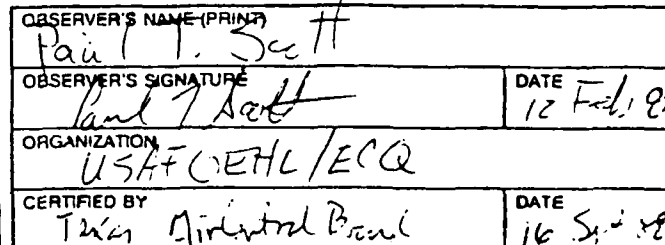 OBSERVER'S NAME (PRINT)
Paul T. Scott
OBSERVER'S SIGNATURE
Paul T Scott
DATE
12 Feb
ORGANIZATION
USAFOEHL/ECQ
CERTIFIED BY
Texas Air Control Board
DATE
16 Sept